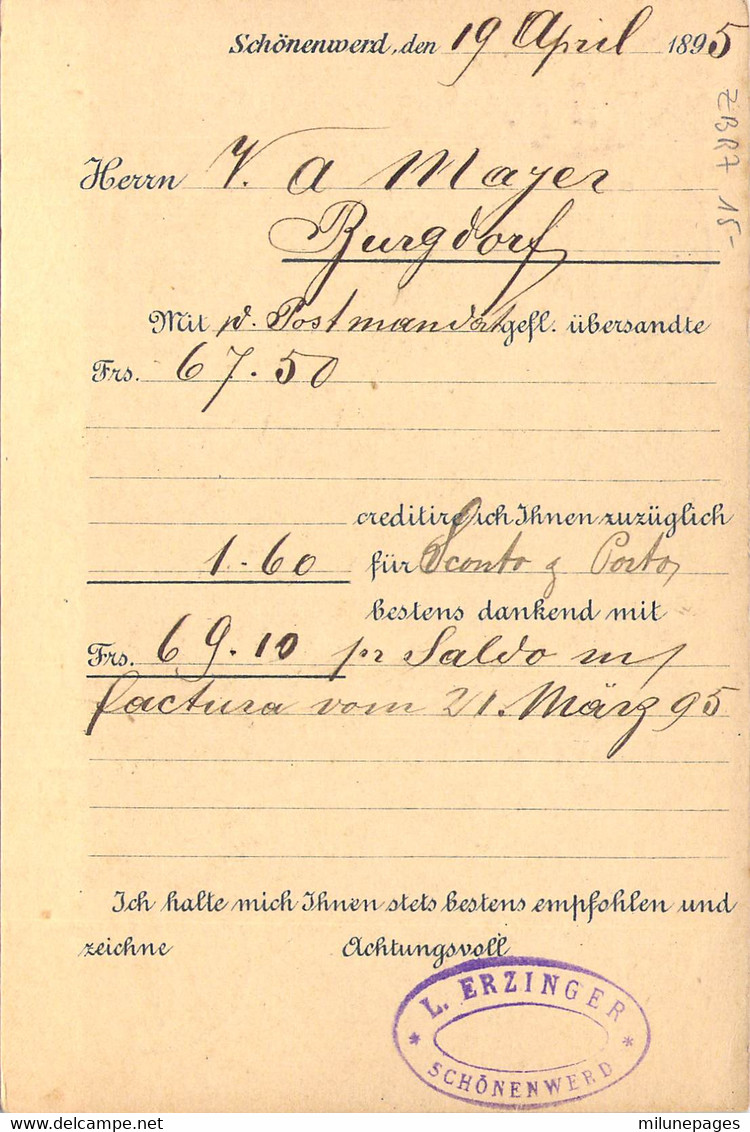 Schönenwerd, den 19 April 1895
ZBR7 15-
Herrn V. A Mayer
Burgdorf
Mit p. Postmandat gefl. übersandte
Frs. 67.50
creditire ich Ihnen zuzüglich
1.60 für Sconto & Porto
bestens dankend mit
Frs. 69.10 pr Saldo m/
factura vom 21. März 95
Ich halte mich Ihnen stets bestens empfohlen und
zeichne Achtungsvoll
* L. ERZINGER *
SCHÖNENWERD
delcampe.net
milunepages